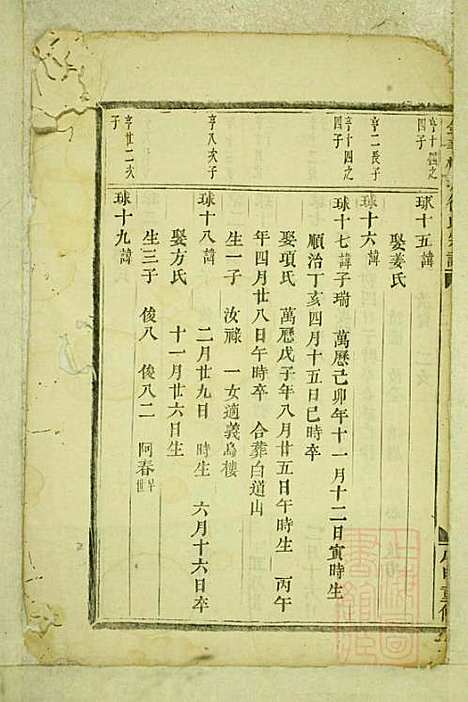 亨十四之四子
球十五諱
娶姜氏
亨二長子
球十六諱
亨十四之四子
球十七諱子瑞 萬曆己卯年十一月十二日寅時生
順治丁亥四月十五日巳時卒
娶項氏 萬曆戊子年八月廿五日午時生 丙午
年四月廿八日午時卒 合葬白道山
生一子 汝祿 一女適義烏樓
亨八次子
球十八諱 二月廿九日 時生 六月十六日卒
娶方氏 十一月廿六日生
生三子 俊八 俊八二 阿春早世
亨廿二次子
球十九諱